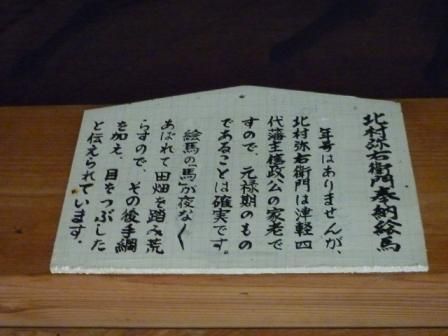 北村弥右衛門奉納絵馬
年号はありませんが、
北村弥右衛門は津軽四
代藩主信政公の家老で
すので、元禄期のもの
であることは確実です。
絵馬の「馬」が夜な〱
あばれて田畑を踏み荒
らすので、その後手綱
を加え、目をつぶした
と伝えられています。